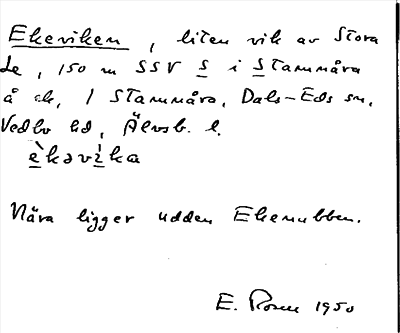 Ekeviken, liten vik av Stora
Le, 150 m SSV S i Stammåra
å ek, 1 Stammåra, Dals-Eds sn,
Vedbo hd, Älvsb. l.
è̱kəvì̱ka
Nära ligger udden Ekenubben.
E. Rosen 1950